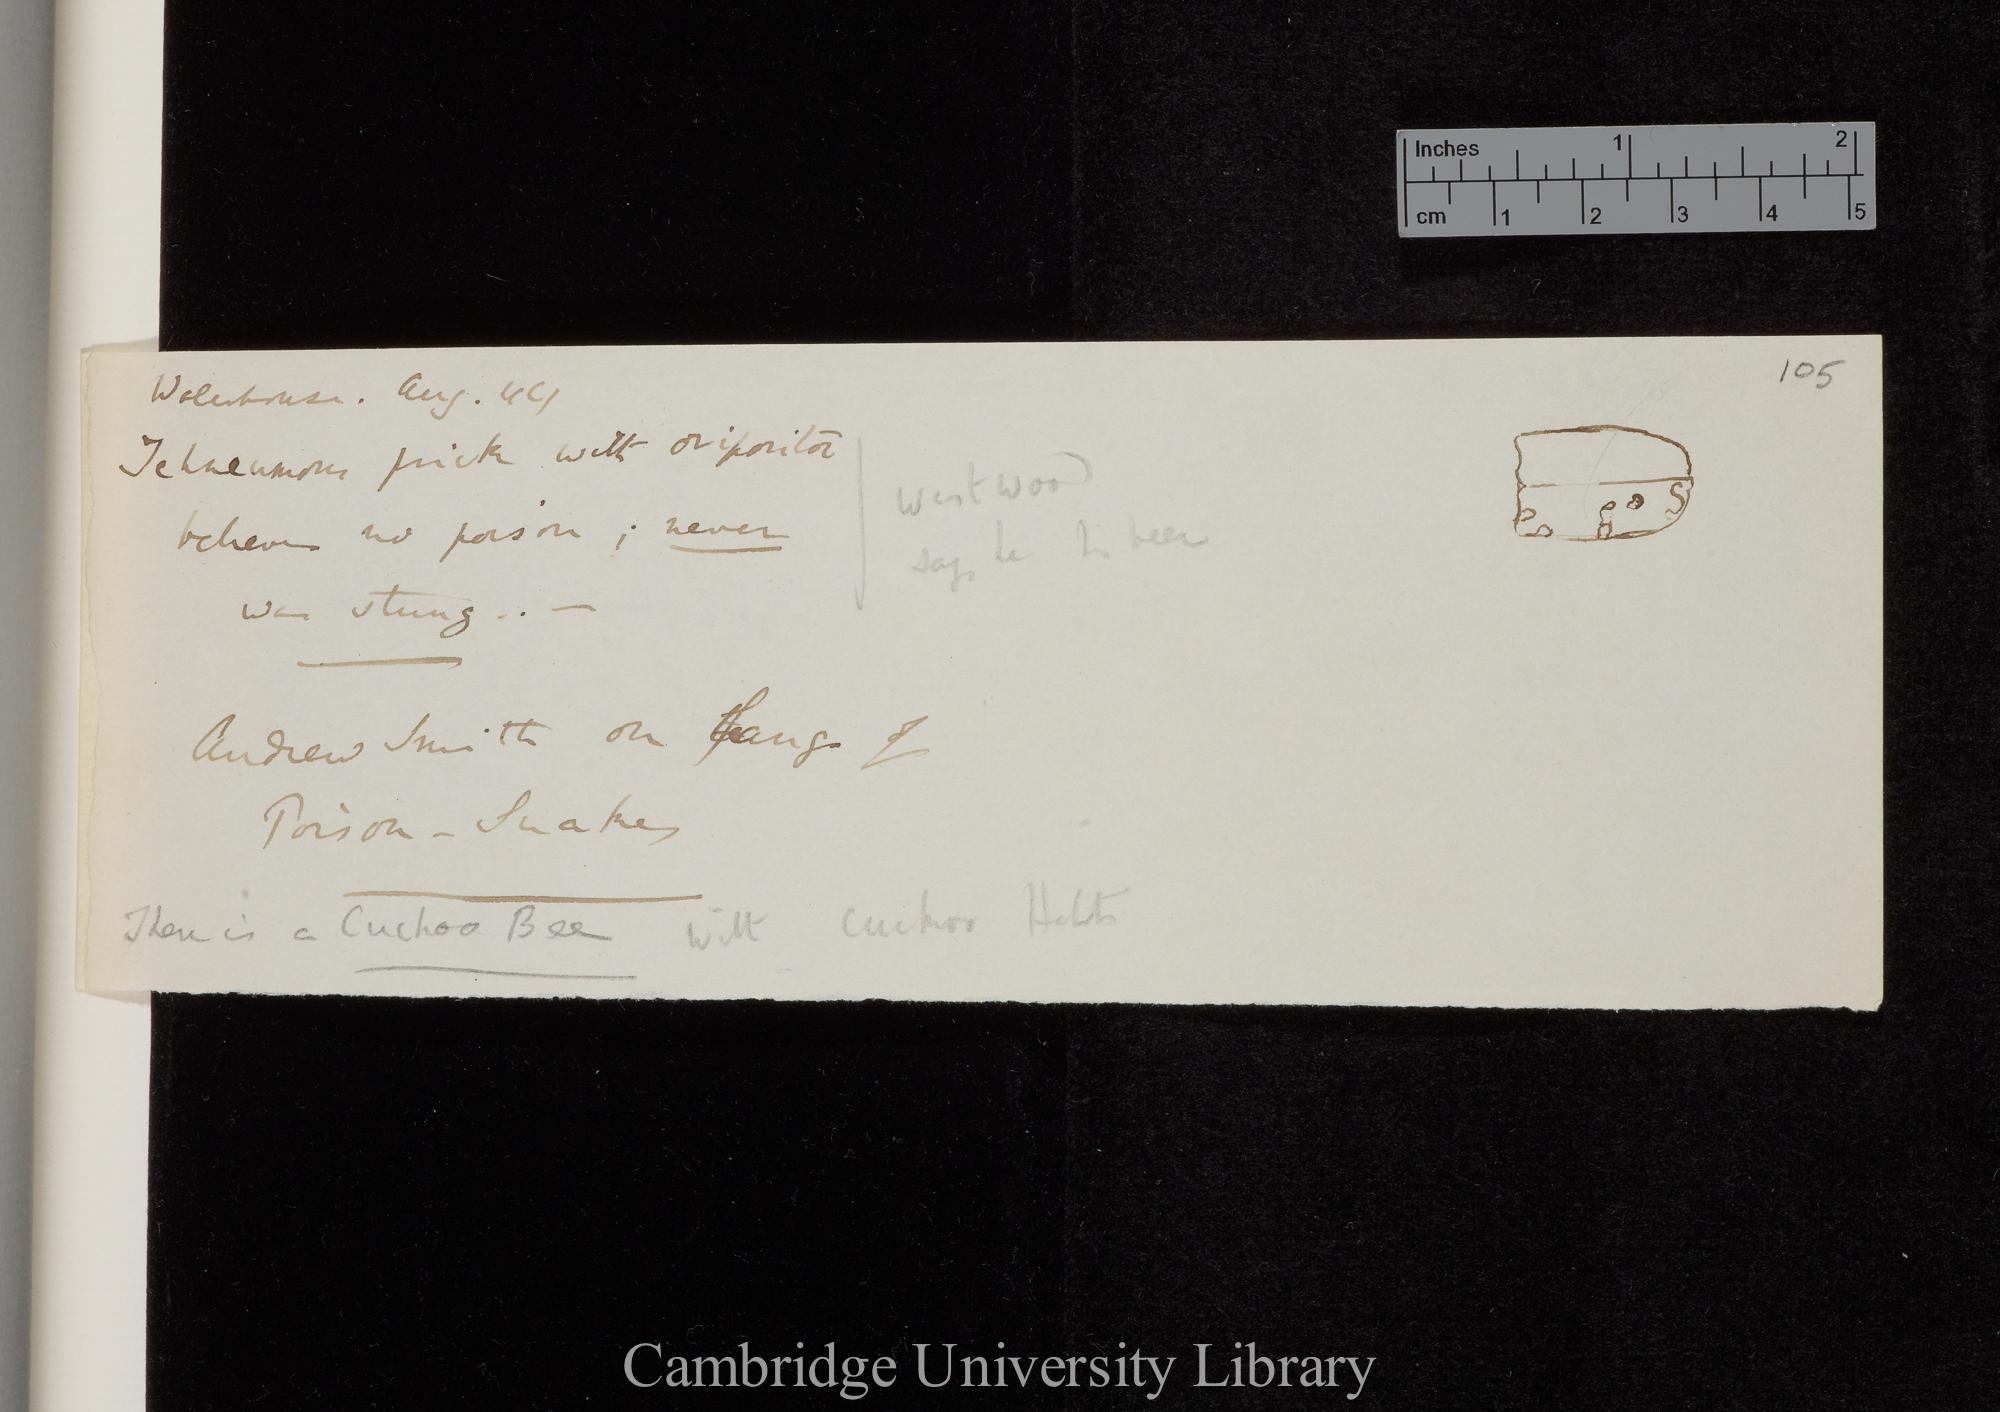 Inches 1 2
cm 1 2 3 4 5
105
Waterhouse. Aug. 44
Ichneumons prick with ovipositor
believes no poison; never
was stung.. —
Westwood
says he has been
Andrew Smith on Fangs of
Poison – Snakes
There is a Cuckoo Bee with cuckoo Habits
Cambridge University Library